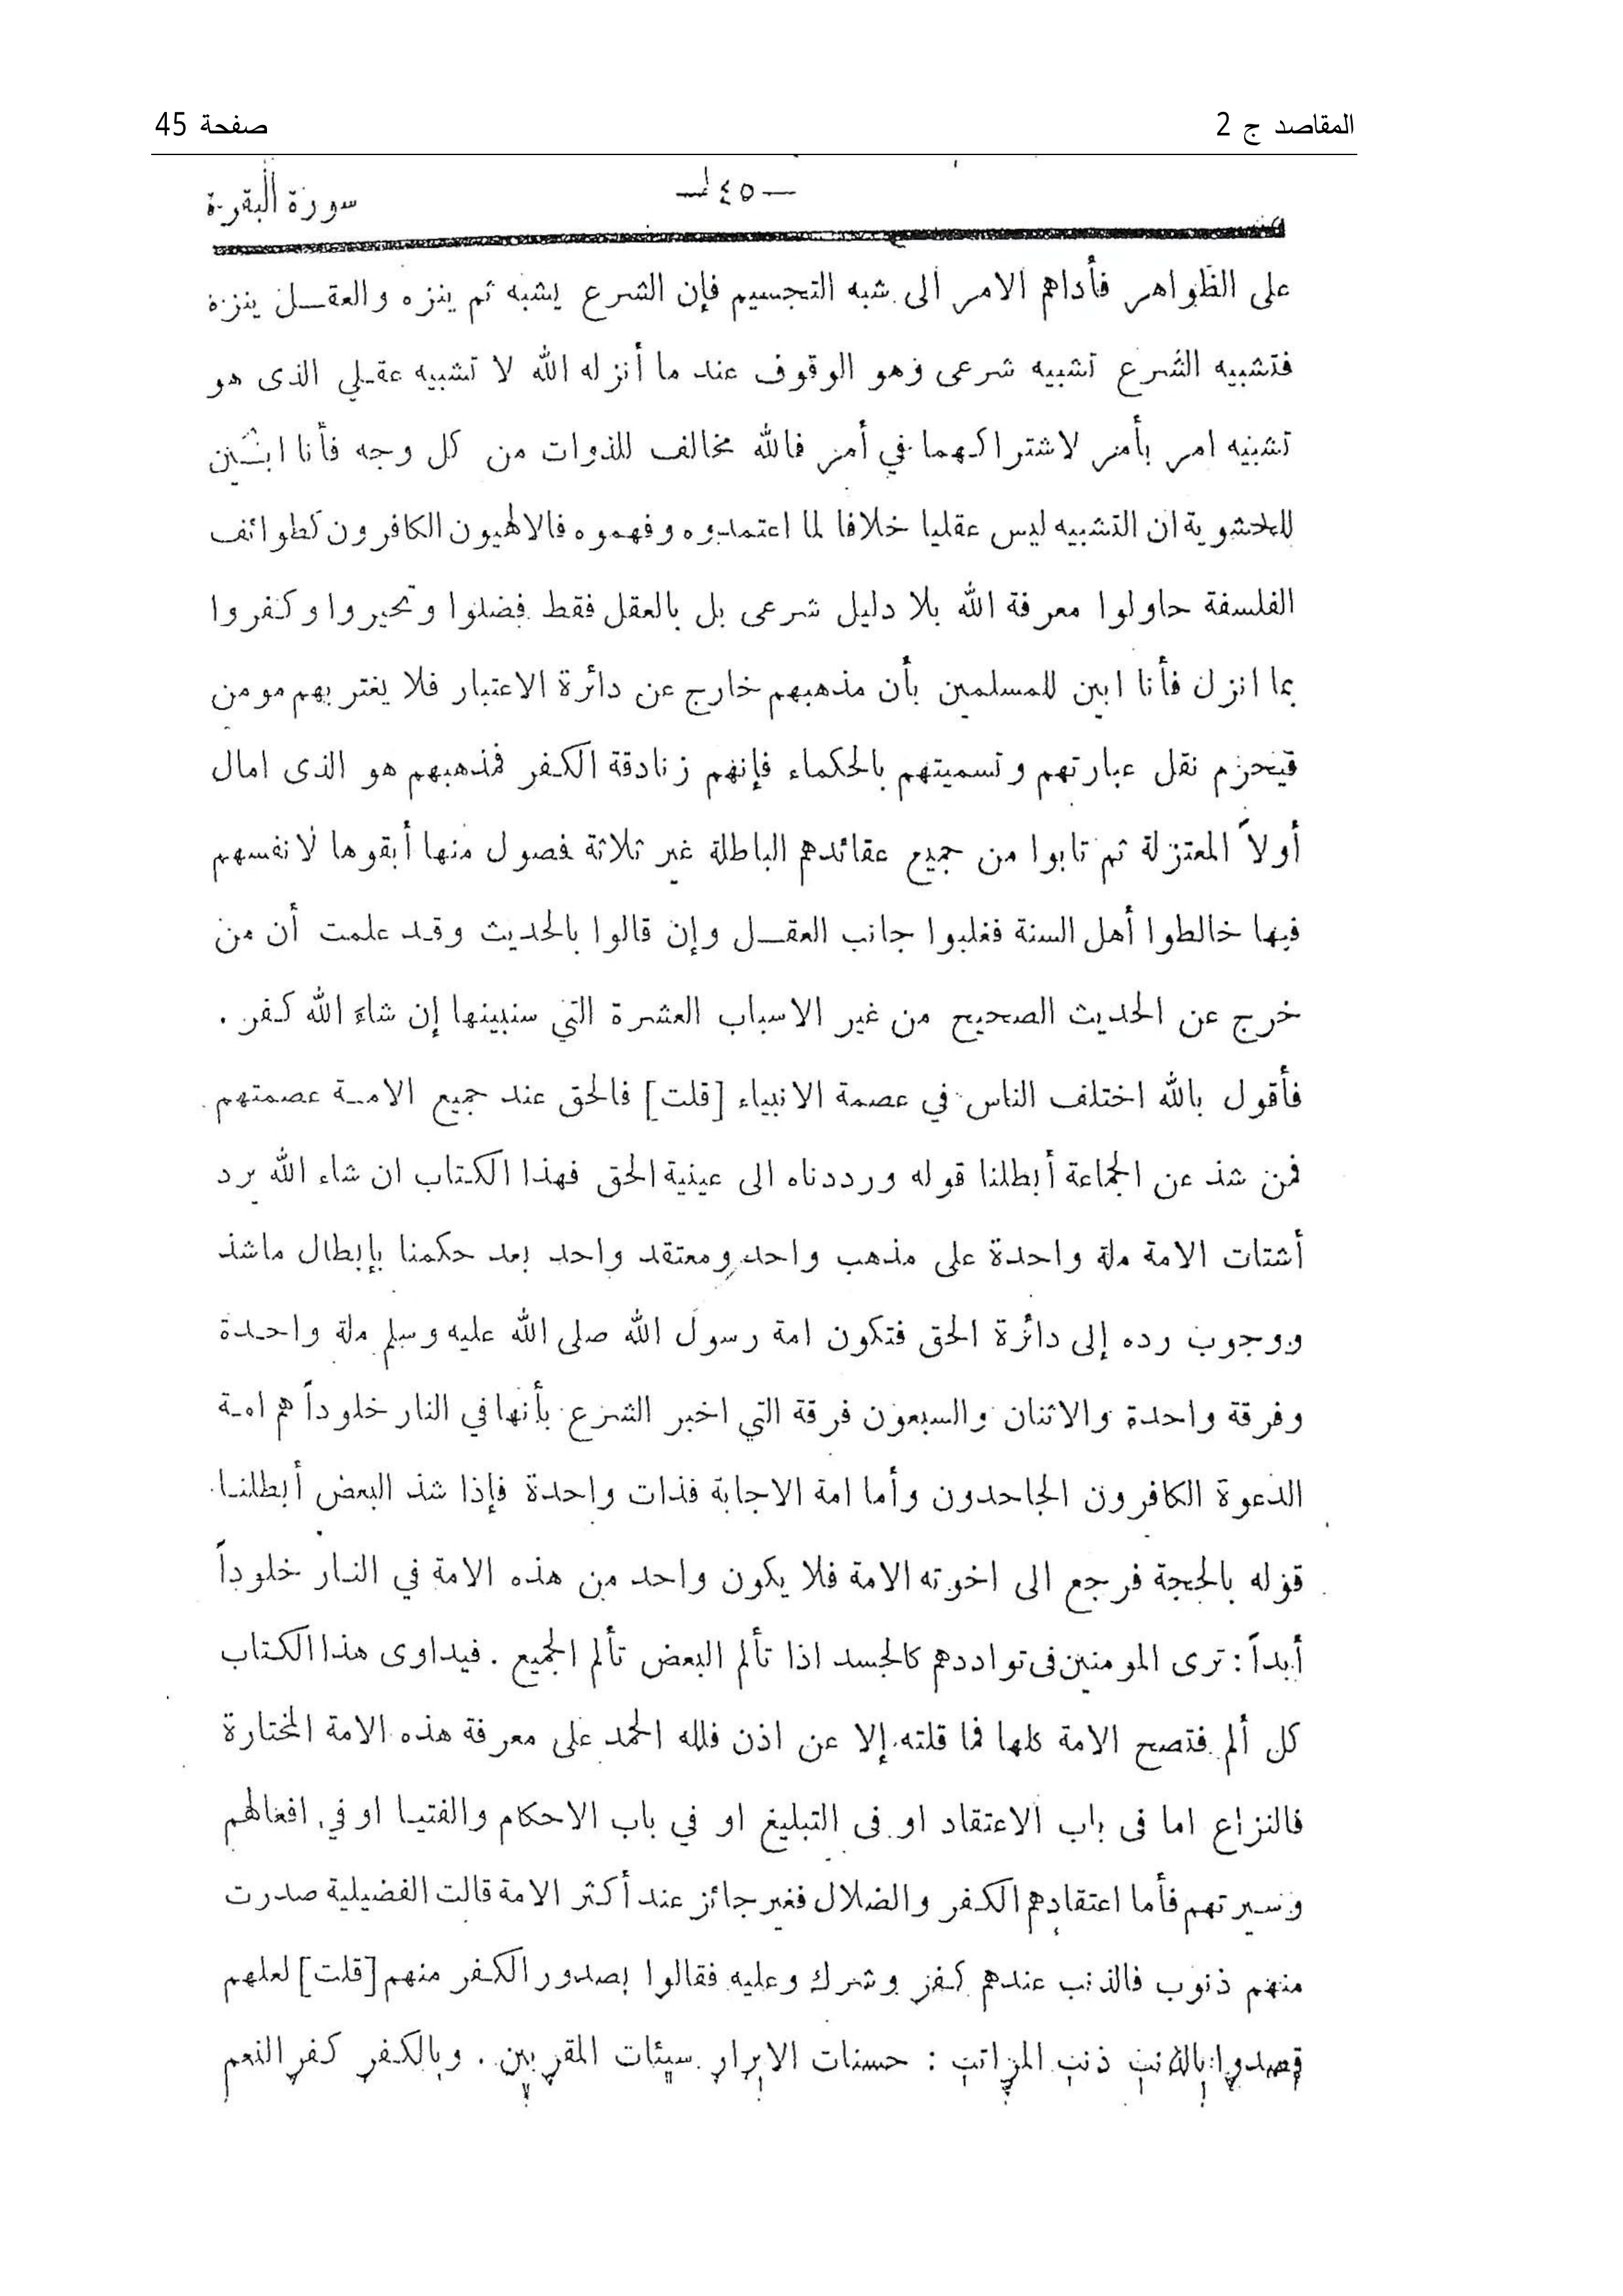 المقاصد ج 2
صفحة 45
— ٤٥ —
سورة البقرة
على الظواهر فأداهم الامر الى شبه التجسيم فإن الشرع يشبه ثم ينزه والعقل ينزه
فتشبيه الشرع تشبيه شرعى وهو الوقوف عند ما أنزله الله لا تشبيه عقلي الذى هو
تشبيه امر بأمر لاشتراكهما في أمر فالله مخالف للذوات من كل وجه فأنا ابين
للحشوية ان التشبيه ليس عقليا خلافا لما اعتمدوه وفهموه فالالهيون الكافرون كطوائف
الفلسفة حاولوا معرفة الله بلا دليل شرعى بل بالعقل فقط فضلوا وتحيروا وكفروا
بما انزل فأنا ابين للمسلمين بأن مذهبهم خارج عن دائرة الاعتبار فلا يغتر بهم مومن
فيحرم نقل عبارتهم وتسميتهم بالحكماء فإنهم زنادقة الكفر فمذهبهم هو الذى امال
أولاً المعتزلة ثم تابوا من جميع عقائدهم الباطلة غير ثلاثة فصول منها أبقوها لانفسهم
فيها خالطوا أهل السنة فغلبوا جانب العقل وإن قالوا بالحديث وقد علمت أن من
خرج عن الحديث الصحيح من غير الاسباب العشرة التي سنبينها إن شاء الله كفر .
فأقول بالله اختلف الناس في عصمة الانبياء [قلت] فالحق عند جميع الامة عصمتهم
فمن شذ عن الجماعة أبطلنا قوله ورددناه الى عينية الحق فهذا الكتاب ان شاء الله يرد
أشتات الامة ملة واحدة على مذهب واحد ومعتقد واحد بعد حكمنا بإبطال ماشذ
ووجوب رده إلى دائرة الحق فتكون امة رسول الله صلى الله عليه وسلم ملة واحدة
وفرقة واحدة والاثنان والسبعون فرقة التي اخبر الشرع بأنها في النار خلوداً هم امة
الدعوة الكافرون الجاحدون وأما امة الاجابة فذات واحدة فإذا شذ البعض أبطلنا
قوله بالحجة فرجع الى اخوته الامة فلا يكون واحد من هذه الامة في النار خلوداً
أبداً : ترى المومنين فى تواددهم كالجسد اذا تألم البعض تألم الجميع . فيداوى هذا الكتاب
كل ألم فتصح الامة كلها فما قلته إلا عن اذن فلله الحمد على معرفة هذه الامة المختارة
فالنزاع اما فى باب الاعتقاد او فى التبليغ او في باب الاحكام والفتيا او في افعالهم
وسيرتهم فأما اعتقادهم الكفر والضلال فغير جائز عند أكثر الامة قالت الفضيلية صدرت
منهم ذنوب فالذنب عندهم كفر وشرك وعليه فقالوا بصدور الكفر منهم [قلت] لعلهم
قصدوا بالذنب ذنب المراتب : حسنات الابرار سيئات المقربين . وبالكفر كفر النعم